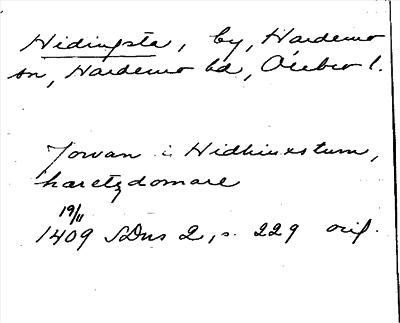 Hidingsta, by, Hardemo
sn, Hardemo hd, Örebro l.
Jowan i Hidhinxstum,
häretzdomare
19/11
1409 SDns 2, s. 229 orig.